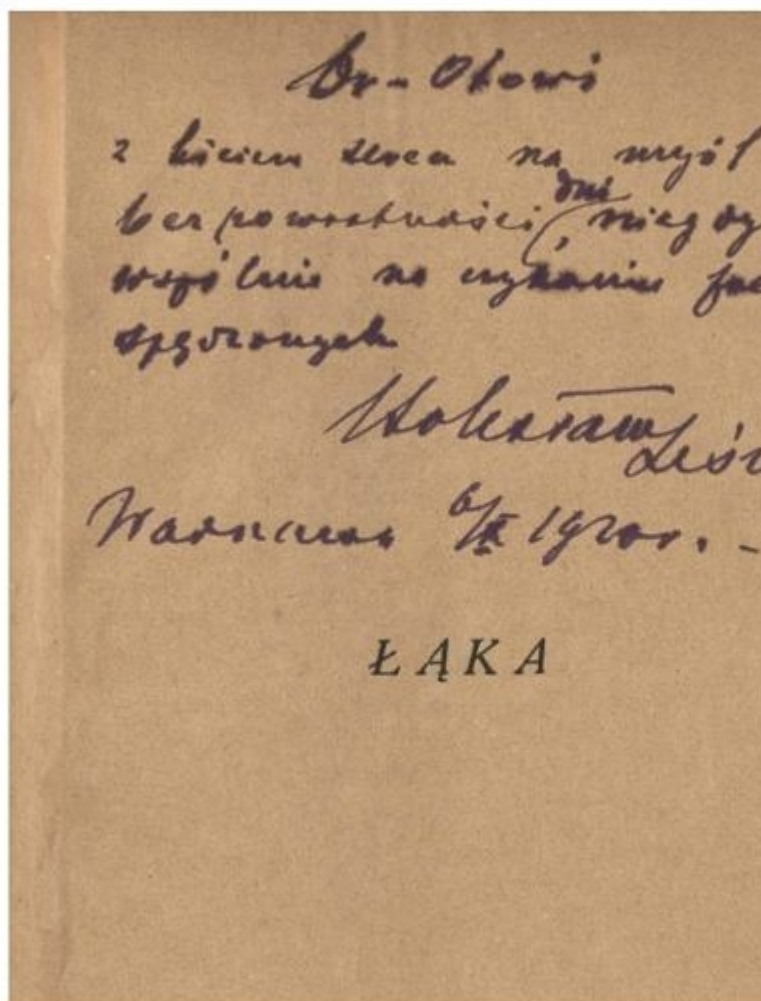 Dr- Otowi
z biciem serca na myśl
bezpowrotności dni niegdy
wspólnie na
spędzonych
Bolesław Leś
Warszawa 6/X 1920 r. -
ŁĄKA